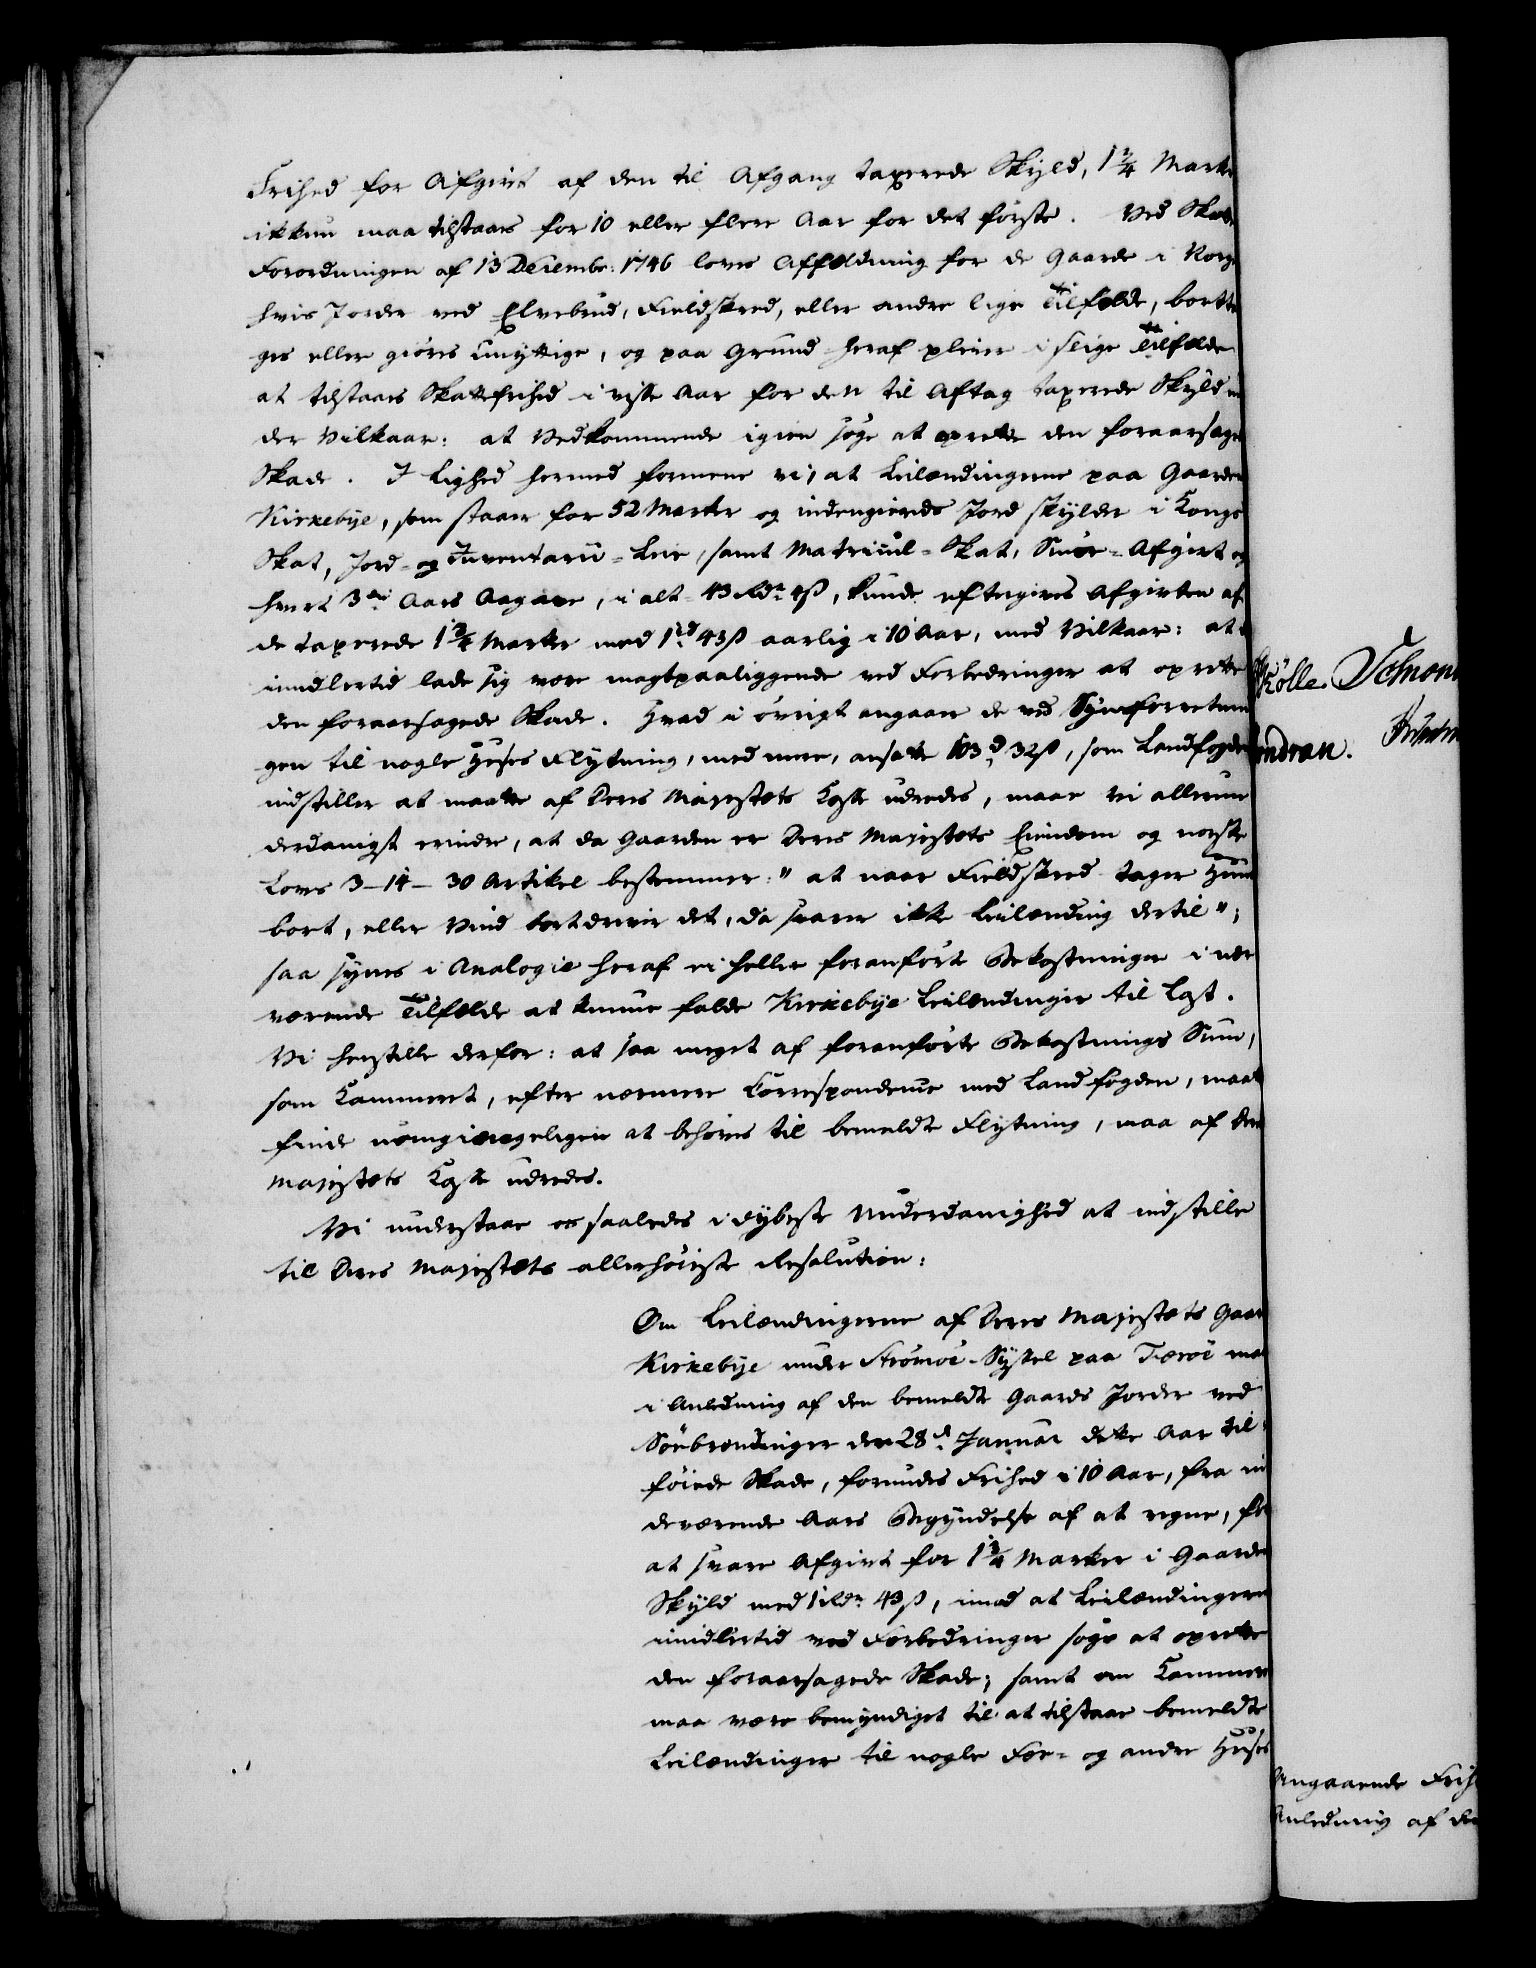 Frihed for Afgivt af den til Afgang taxerede Skyld, 1 3/4 Mark
ikkun maa tilstaaes for 10 eller flere Aar for det første. Ved Skatte
Forordningen af 13 Decembr: 1746 loves Affældning for de Gaarde i Norge
hvis Jorder ved Elvebrud, Fieldskred, eller andre lige Tilfælde, bortta
ges eller giøres unyttige, og paa Grund heraf pleier i slige Tilfælde
at tilstaaes Skattefrihed i visse Aar for den til Aftag taxerede Skyld un
der Vilkaar: at Vedkommende igien søge at oprette den foraarsagede
Skade. I Lighed hermed formene vi, at Leilændingerne paa Gaarden
Kirkebye, som staaer for 52 Marker og indengierds Jord skylder i Konge
Skat, Jord- og Inventarii-Leie, samt Matricul-Skat, Smør-Afgivt og
hvert 3die Aars Aagave, i alt 43 rdr 4 ß, kunde eftergives Afgivten af
de taxerede 1 3/4 Marker med 1 rd 43 ß aarlig i 10 Aar, med Vilkaar: at
imidlertid lade sig være magtpaaliggende ved Forbedringer at oprette
den foraarsagede Skade. Hvad i øvrigt angaaer de ved Synsforretnin
gen til nogle Huses Flytning, med mere, ansatte 103 d 32 ß, som Landfogden
indstiller at maatte af Deres Majestæts Casse udredes, maae vi allerun
derdanigst erindre, at da Gaarden er Deres Majestæts Eiendom og norske
Lovs 3-14-30 Artikel bestemmer: "at naar Fieldskred tager Huus
bort, eller Vind bortdriver det, da svarer ikke Leilænding dertil";
saa synes i Analogie heraf ei heller foranførte Bekostninger i nær
værende Tilfælde at kunne falde Kirkebye Leilændinger til Last.
Vi henstille derfor: at saa meget af foranførte Bekostnings Sum,
som Kammeret, efter nærmere Correspondence med Landfogden, maatte
finde uomgiængeligen at behøves til bemeldte Flytning, maa af Deres
Majestæts Casse udredes.
Vi understaae os saaledes i dybeste Underdanighed at indstille
til Deres Majestæts allerhøieste Resolution:
Om Leilændingerne af Deres Majestæts Gaard
Kirkebye under Strømøe-Syssel paa Færøe maa
i Anledning af den bemeldte Gaards Jorder ved
Søebrændinger den 28d Januar dette Aar til-
føiede Skade, forundes Frihed i 10 Aar, fra in
deværende Aars Begyndelse af at regne, for
at svare Afgivt for 1 3/4 Marker i Gaardens
Skyld med 1 rdr 43 ß, imod at Leilændingerne
imidlertid ved Forbedringer søge at oprette
den foraarsagede Skade; samt om Kammeret
maa være bemyndiget til at tilstaae bemeldte
Leilændinger til nogle Fæe- og andre Huses
Kölle.
endran.
Angaaende Frih
Anledning af den